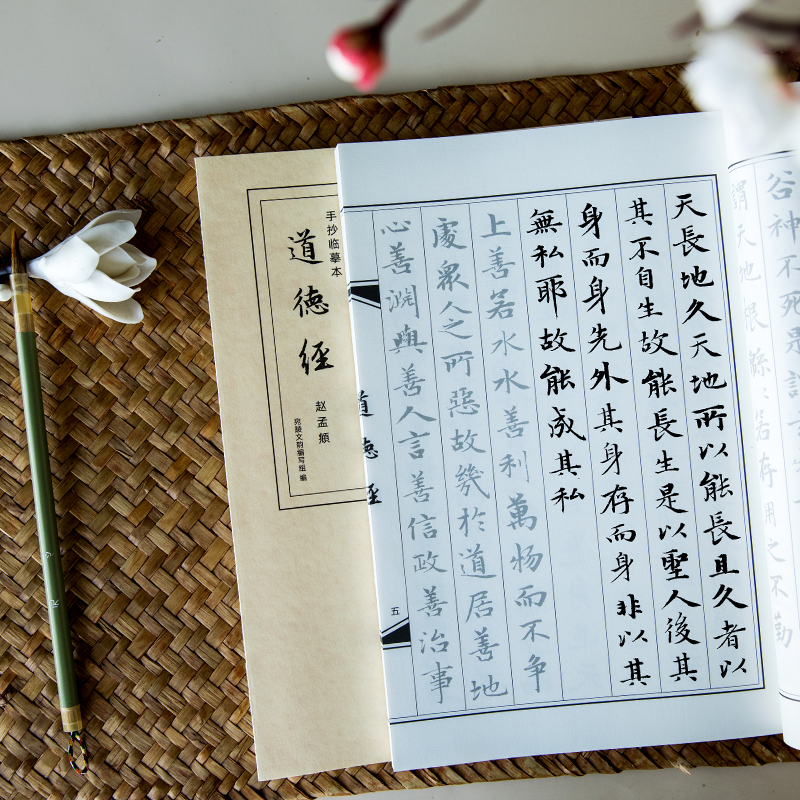 谷神不死是謂
謂天地根綿〻若存用之不勤
天長地久天地所以能長且久者以
其不自生故能長生是以聖人後其
身而身先外其身存而身非以其
無私耶故能成其私
上善若水水善利萬物而不争
處衆人之所惡故幾於道居善地
心善渊與善人言善信政善治事
道德經
五
手抄临摹本
道德經
赵孟頫
文韵编写组 编